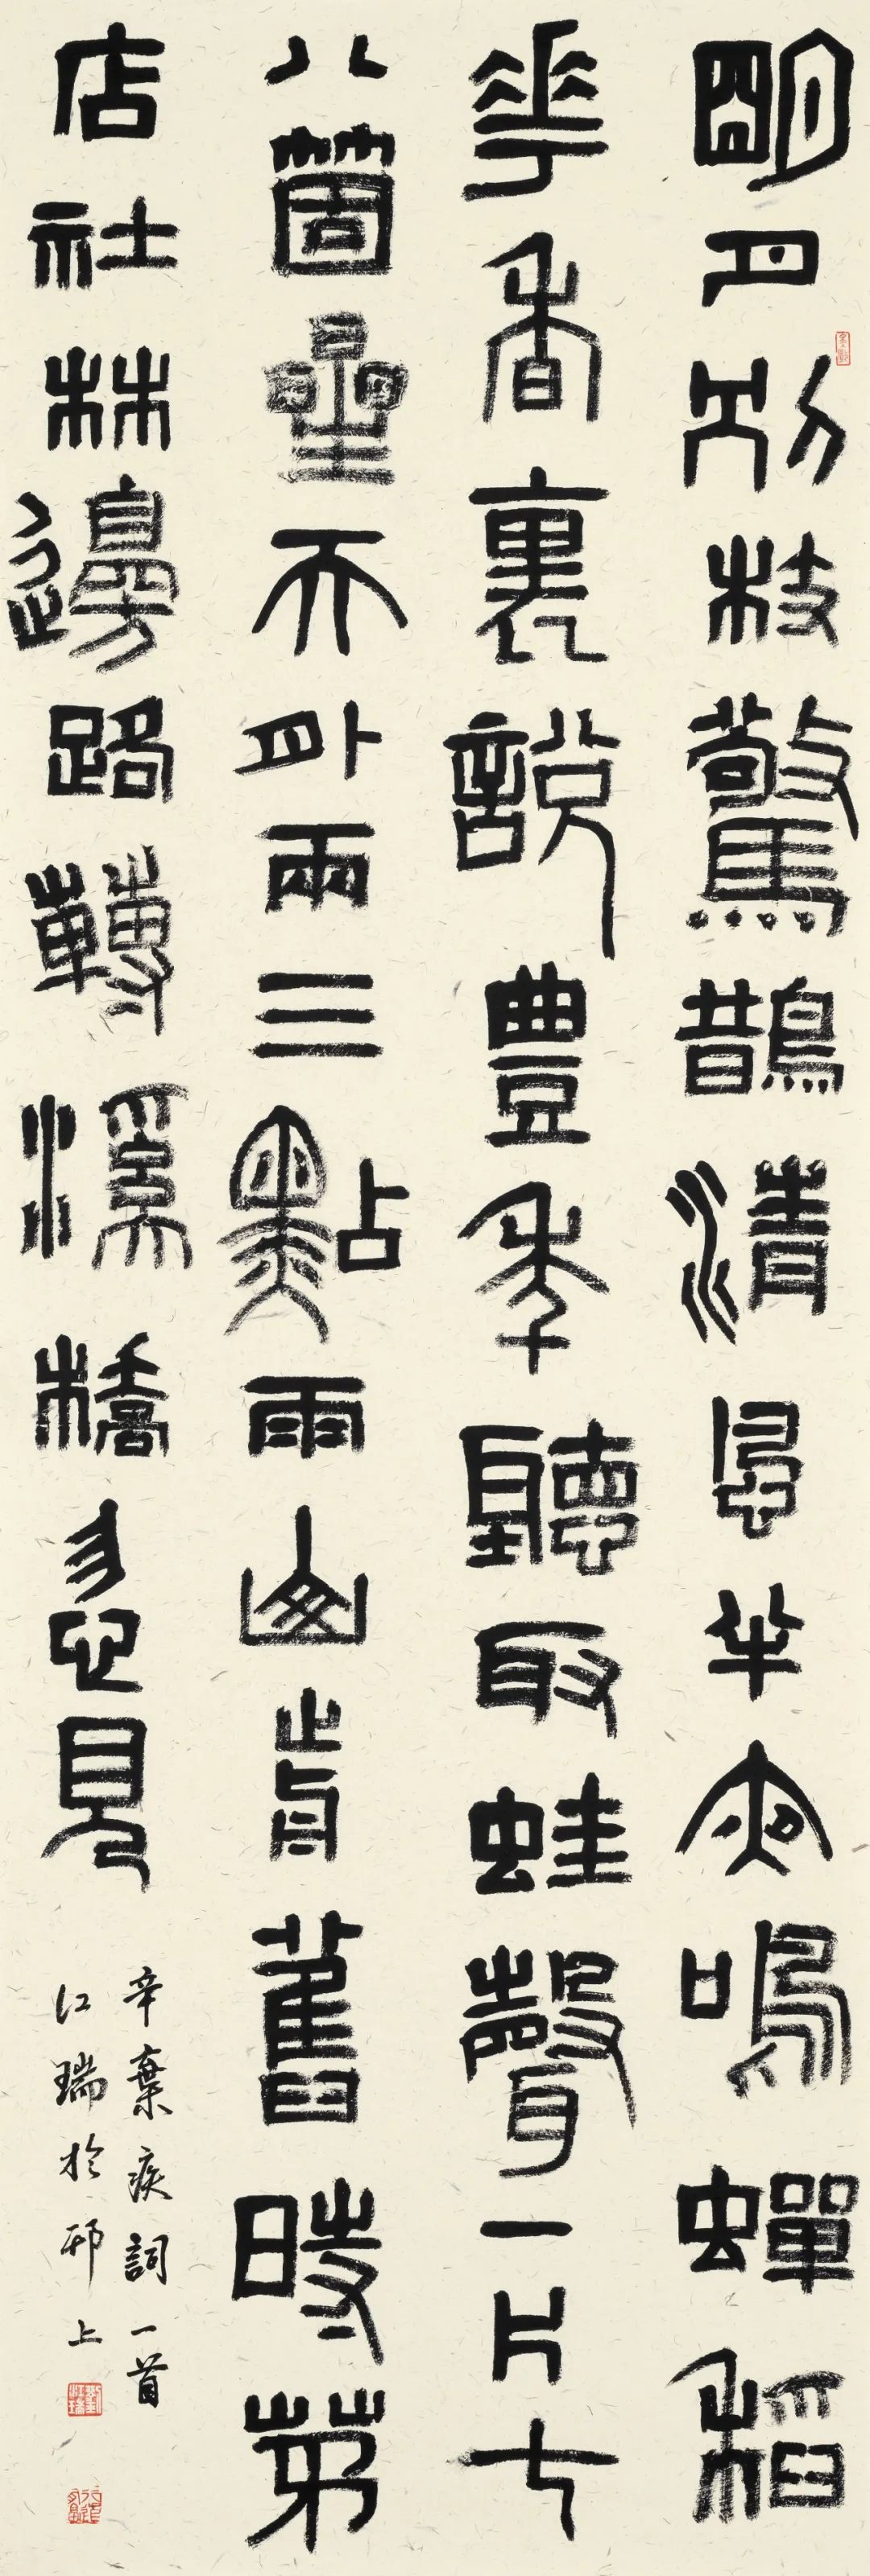 朙月別枝驚鵲清風半夜鳴蟬稻
華香裏說豐年聽取蛙聲一片七
八箇星天外兩三點雨山前舊時茅
店社林邊路轉溪橋忽見
辛棄疾詞一首
江瑞於邗上